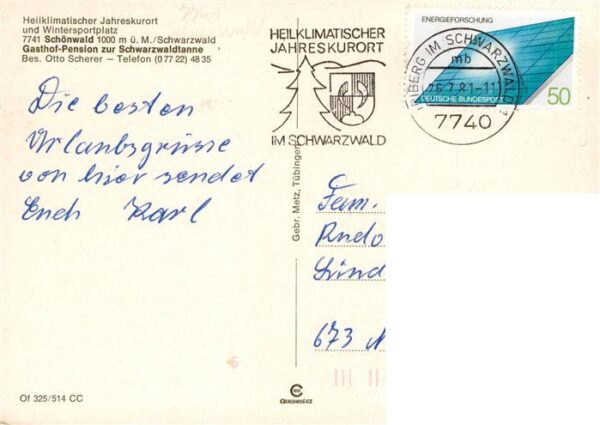 Heilklimatischer Jahreskurort
und Wintersportplatz
7741 Schönwald 1000 m ü. M./Schwarzwald
Gasthof-Pension zur Schwarzwaldtanne
Bes. Otto Scherer – Telefon (0 77 22) 48 35
7741
HEILKLIMATISCHER
JAHRESKURORT
IM SCHWARZWALD
ENERGIEFORSCHUNG
DEUTSCHE BUNDESPOST
50
TRIBERG IM SCHWARZWALD 1
mb
7740
Die besten
Urlaubsgrüsse
von hier sendet
Euch Karl
Gebr. Metz, Tübingen
Fam.
Rudo
Lind
673 N
6
Of 325/514 CC